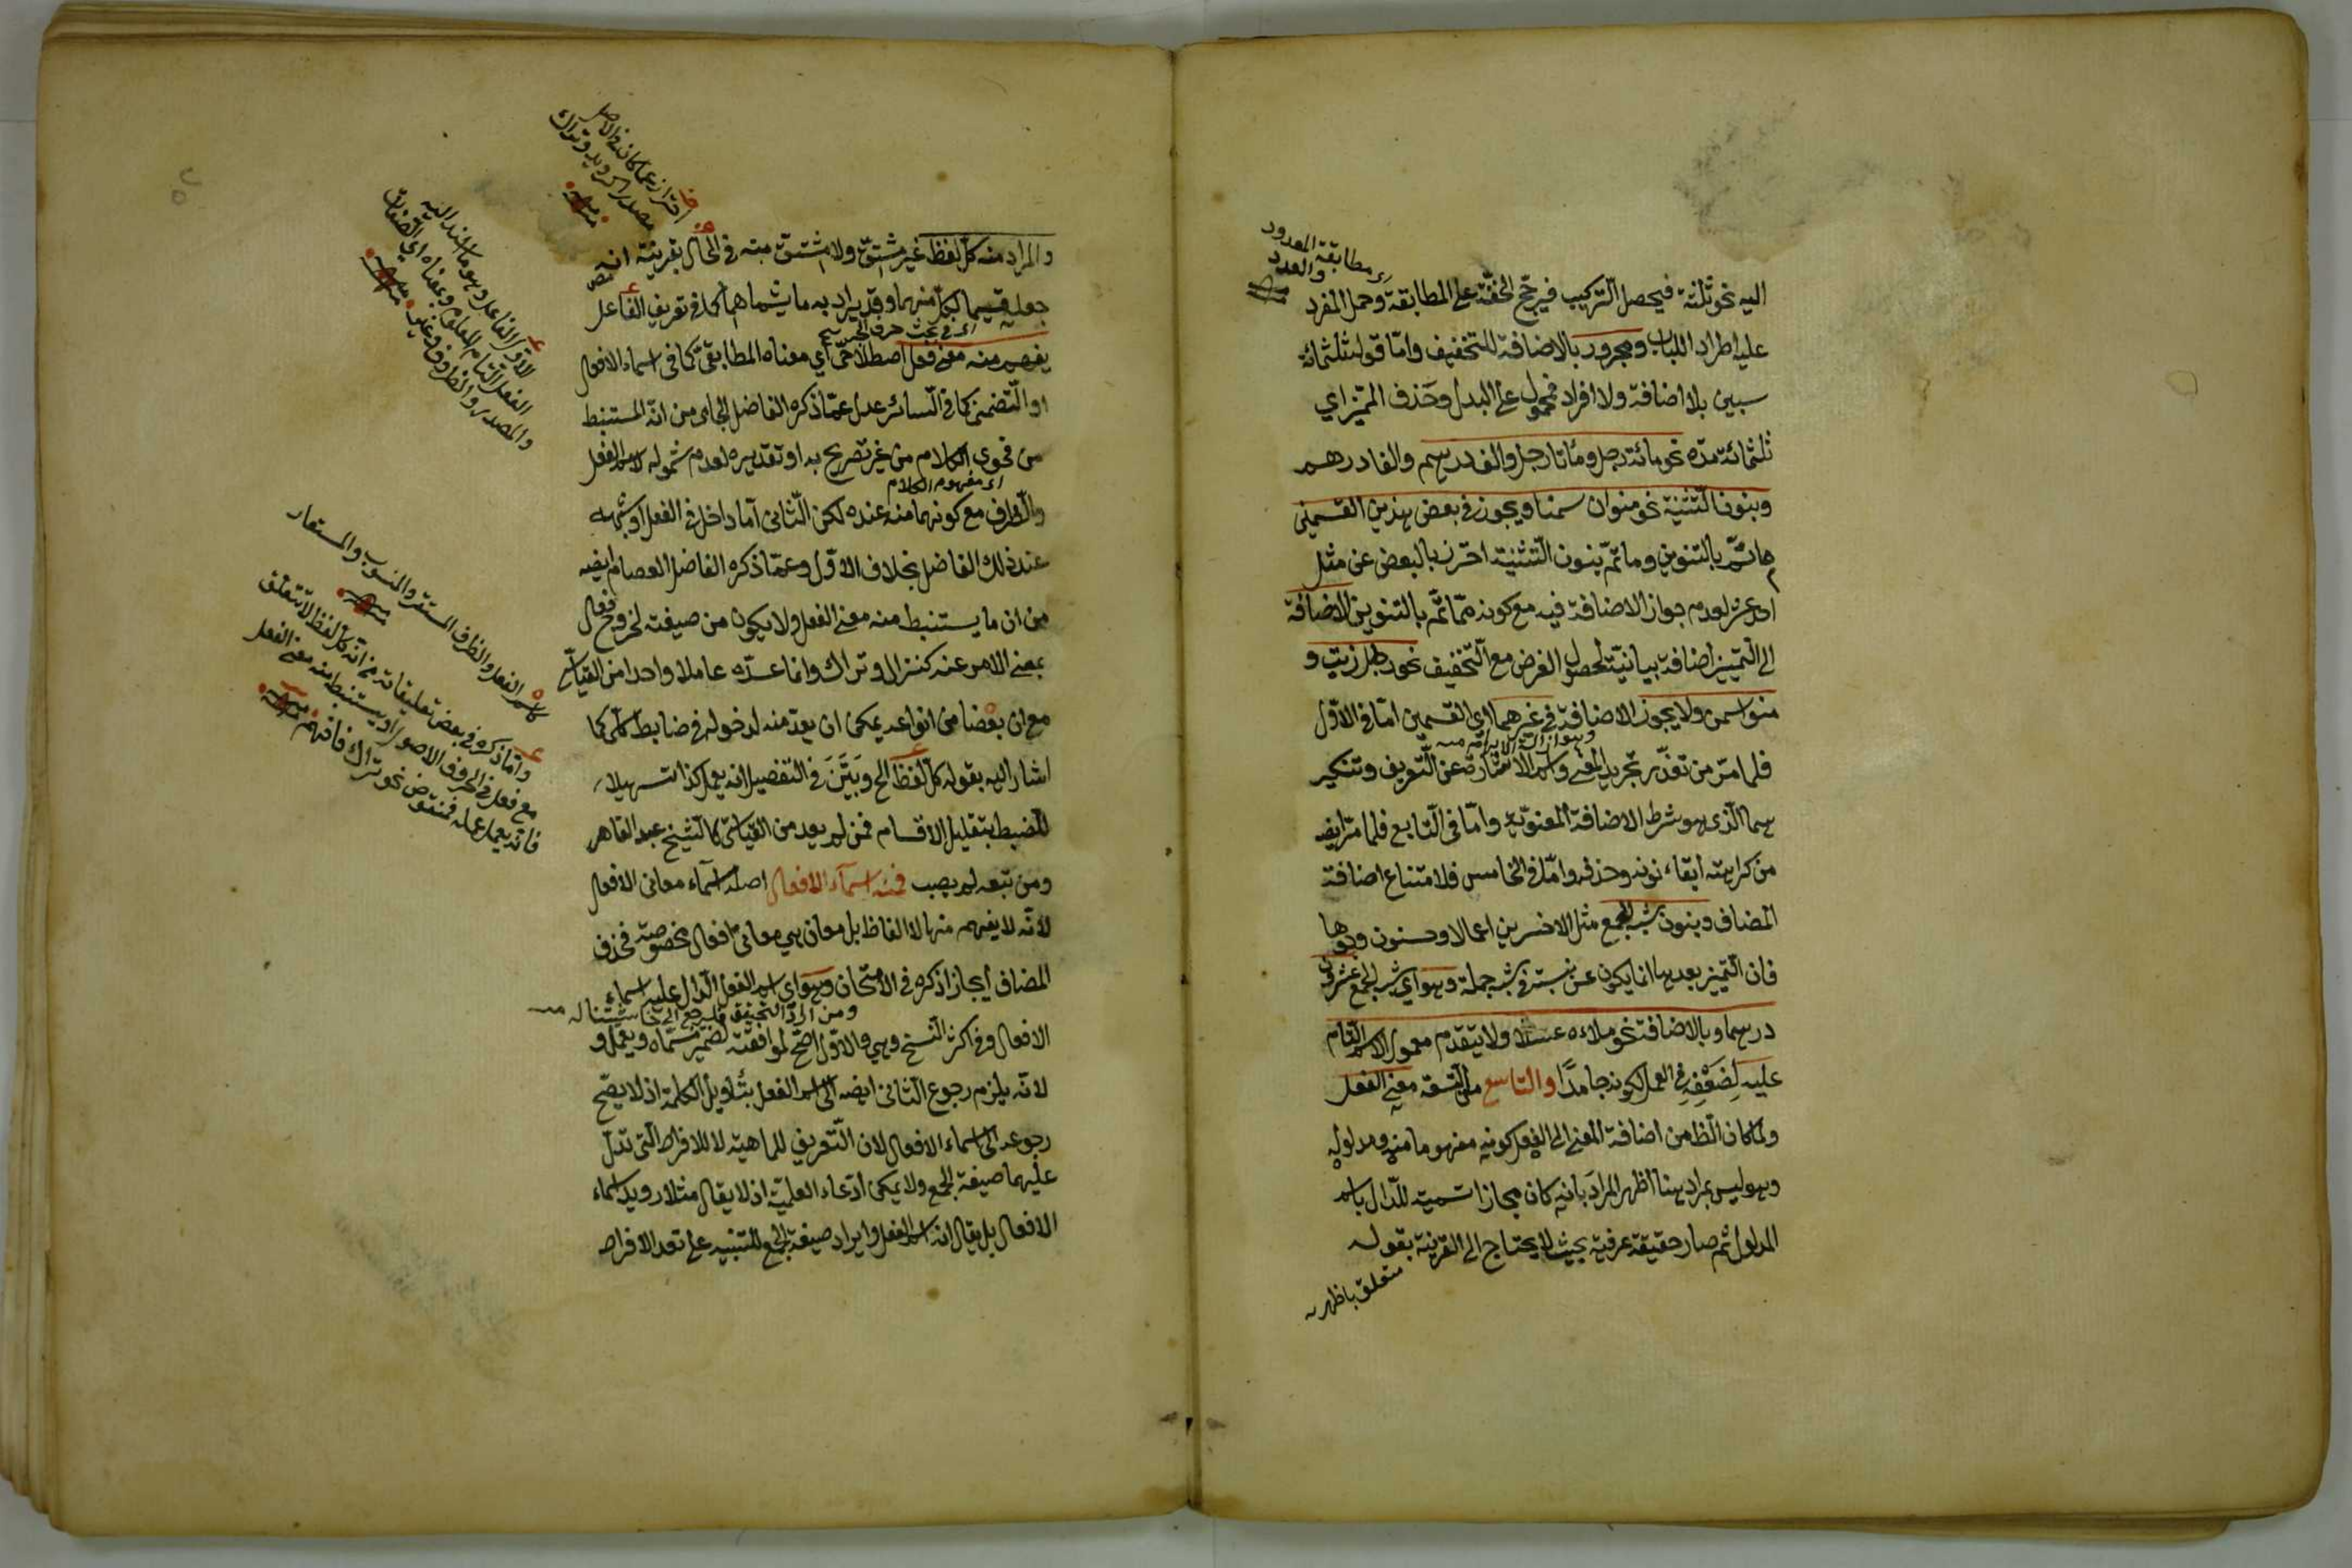 اليه نحو ثلثة فيحصل التركيب فيرجح الخفة على المطابقة وحمل المفرد
عليه اطراد اللباب ومجرور بالاضافة للتخفيف وامّا قوله ثلثمائة
سنين بلا اضافة ولا افراد فمحمول على البدل وحذف المميّز اي
ثلثمائة مدّه نحو مائة رجل ومائتا رجل والف درهم والفا درهم
وبنون التثنية نحو منوان سمنا ويجوز في بعض هذين القسمين
ما تمّ بالتنوين وما تمّ بنون التثنية احترز بالبعض عن مثل
احد عشر لعدم جواز الاضافة فيه مع كونه ممّا تمّ بالتنوين الاضافة
الى التمييز اضافة بيانيّة لحصول الغرض مع التخفيف نحو رطل زيت و
منوا سمن ولا يجوز الاضافة في غيرهما اي القسمين امّا في الاوّل
فلما مرّ من تعذّر تجريد المضمر واسم الاشارة عن التعريف وتنكير
هما الذي هو شرط الاضافة المعنويّة وامّا في الرابع فلما مرّ ايضه
من كراهة ابقاء نونه وحذفه وامّا في الخامس فلامتناع اضافة
المضاف وبنون شبه الجمع مثل الاخسرين اعمالا وحسنون وجوها
فان التمييز بعدهما انما يكون عن نسبة في شبه جملة وهو اي شبه الجمع عشرون
درهما وبالاضافة نحو ملاءه عسلا ولا يتقدم معمول الاسم التام
عليه لضعفه في العمل لكونه جامدًا والتاسع من التسعة معنى الفعل
ولمّا كان الظ من اضافة المعنى الى الفعل كونه مفهوما منه ومدلوله
وهو ليس بمراد هنا اظهر المراد بانه كان مجازا تسمية للدّال باسم
المدلول ثم صار حقيقة عرفية بحيث لا يحتاج الى القرينة بقوله
متعلق باظهر
اي مطابقة المعدود
والعدد
والمراد منه كلّ لفظ غير مشتقّ ولا مشتقّ منه في الحال بقرينة انه
جعله قسيما لكلّ منهما وقد يراد به ما يشملهما كما في تعريف الفاعل
اي في بحث حرف الجر
يفهم منه معنى فعل اصطلاحيّ اي معناه المطابقيّ كما في اسماء الافعال
او التضمنيّ كما في السائر عدل عمّا ذكره الفاضل الجامي من انّه المستنبط
من فحوى الكلام من غير تصريح به او تقديره لعدم شموله لاسم الفعل
اي مفهوم الكلام
والظرف مع كونهما منه عنده لكن الثاني امّا داخل في الفعل او شبهه
عند ذلك الفاضل بخلاف الاوّل وعمّا ذكره الفاضل العصام ايضه
من ان ما يستنبط منه معنى الفعل ولا يكون من صيغته لخروج فعال
بمعنى الامر عنه كنزال وتراك وانما عدّه عاملا واحدا من القياسيّ
مع ان بعضا من انواعه يمكن ان يعدّ منه لدخوله في ضابط كلّي كما
اشار اليه بقوله كلّ لفظ الخ وبيّن في التفصيل انه يعمل كذا تسهيلا
للضبط بتقليل الاقسام فمن لم يعد من القياسيّ كالشيخ عبد القاهر
ومن تبعه لم يصب فمنه اسمآء الافعال اصله اسمآء معاني الافعال
لانّه لا يفهم منها الالفاظ بل معان هي معاني افعال مخصوصة فحذف
المضاف ايجازا ذكره في الامتحان وهو اي اسم الفعل الدال عليه اسماء
الافعال وفي اكثر النسخ وهي والاوّل اصحّ لموافقته لضمير مسمّاه ويعمل و
لانّه يلزم رجوع الثاني ايضه الى اسم الفعل بتأويل الكلمة اذ لا يصحّ
رجوعه الى اسماء الافعال لان التعريف للماهية لا للافراد التي تدلّ
عليها صيغة الجمع ولا يمكن ادّعاء العلميّة اذ لا يقال مثلا رويد اسماء
الافعال بل يقال انه اسم الفعل وايراد صيغة الجمع للتنبيه على تعدد الافراد
مصدرا كرويد وتراك
كاسم الفعل والظرف المستقر والمنسوب والمستعار
وامّا ذكره في بعض تعليقاته من انّه كلّ لفظ لا يتعلق
مع فعل في الحروف الاصول او يستنبط منه معنى الفعل
فانه يعمل عمله فمنقوض نحو تراك فافهم